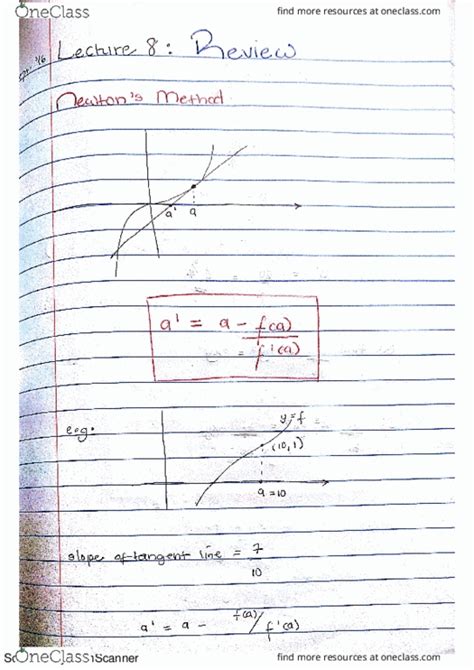 OneClass
find more resources at oneclass.com
Lecture 8: Review
Newton's Method
a' a
a' = a - f(a)
f'(a)
y=f
e.g:
(10,1)
a=10
slope of tangent line = 7
10
a' = a - f(a)/f'(a)
OneClass
Scanner
find more resources at oneclass.com